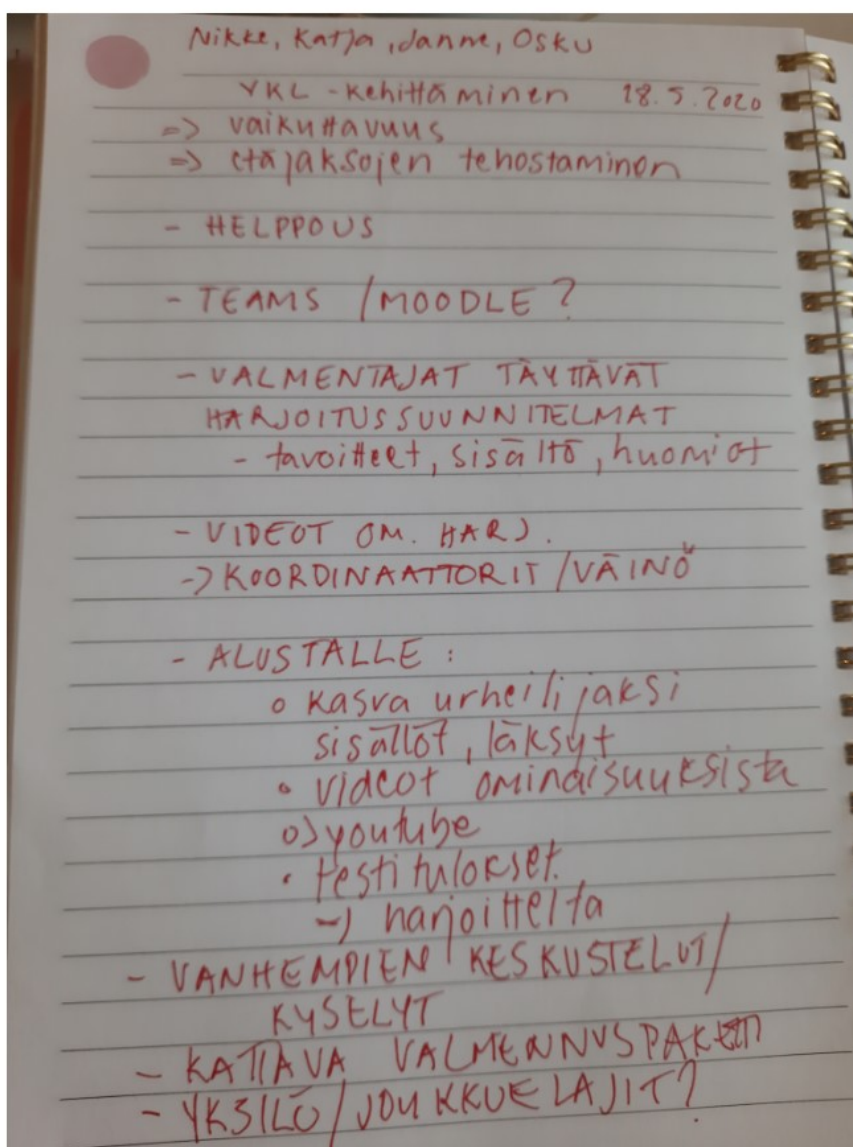 Nikke, Katja, Janne, Osku
YKL - Kehittäminen 28.5.2020
=> vaikuttavuus
=> etäjaksojen tehostaminen
- HELPPOUS
- TEAMS / MOODLE ?
- VALMENTAJAT TÄYTTÄVÄT
HARJOITUSSUUNNITELMAT
- tavoitteet, sisältö, huomiot
- VIDEOT OM. HARJ.
-> KOORDINAATTORIT / VÄINÖ
- ALUSTALLE :
o Kasva urheilijaksi
sisällöt, läksyt
• videot ominaisuuksista
o) youtube
• testitulokset
-) harjoittelta
- VANHEMPIEN KESKUSTELUT/
KYSELYT
- KATTAVA VALMENNUSPAKETTI
- YKSILÖ / JOUKKUELAJIT ?